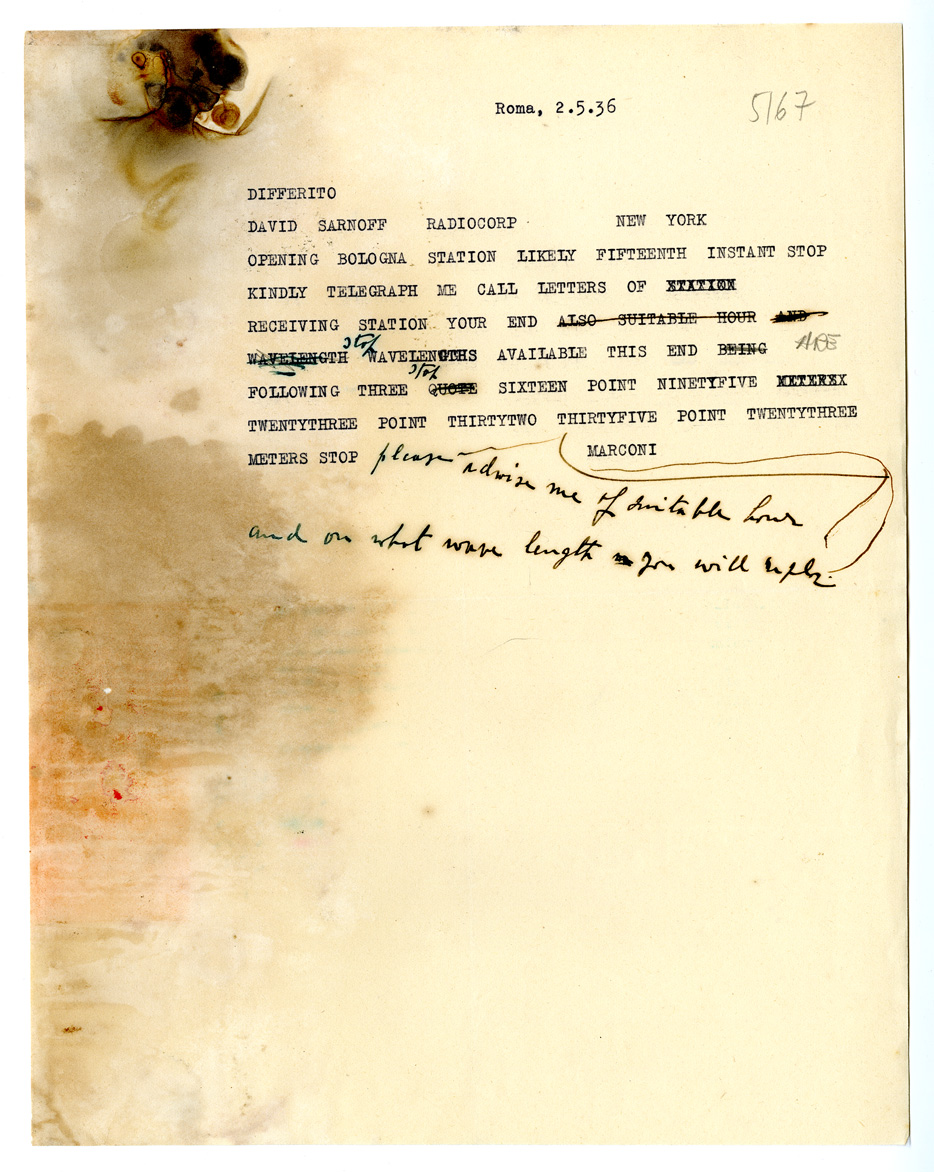 Roma, 2.5.36
5167
DIFFERITO
DAVID SARNOFF RADIOCORP NEW YORK
OPENING BOLOGNA STATION LIKELY FIFTEENTH INSTANT STOP
KINDLY TELEGRAPH ME CALL LETTERS OF STATION
RECEIVING STATION YOUR END ALSO SUITABLE HOUR AND
WAVELENGTH stop WAVELENGTHS AVAILABLE THIS END BEING ARE
FOLLOWING THREE QUOTE stop SIXTEEN POINT NINETYFIVE METERSX
TWENTYTHREE POINT THIRTYTWO THIRTYFIVE POINT TWENTYTHREE
METERS STOP please advise me of suitable hour MARCONI
and on what wave length you will reply.